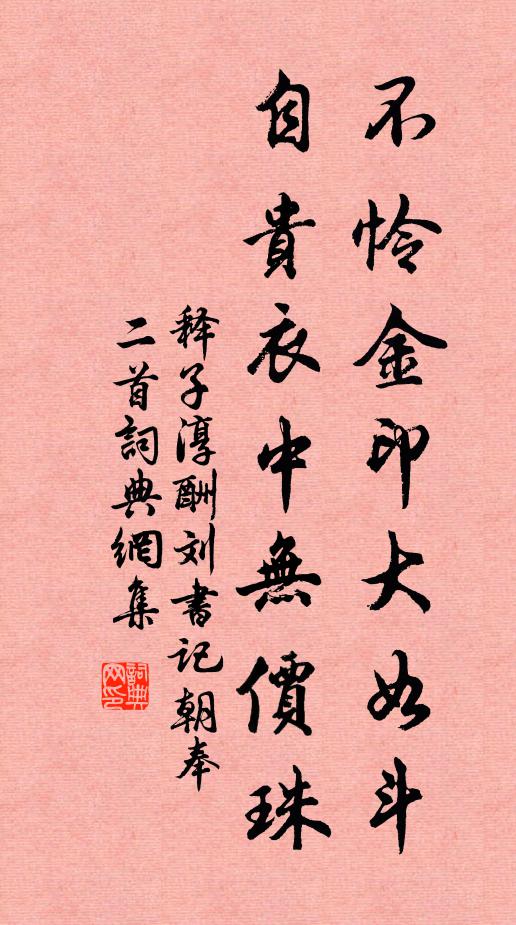 不怜金印大如斗
自貴衣中無價珠
释子淳酬刘書记朝奉
二首詞典網集
詞典网印